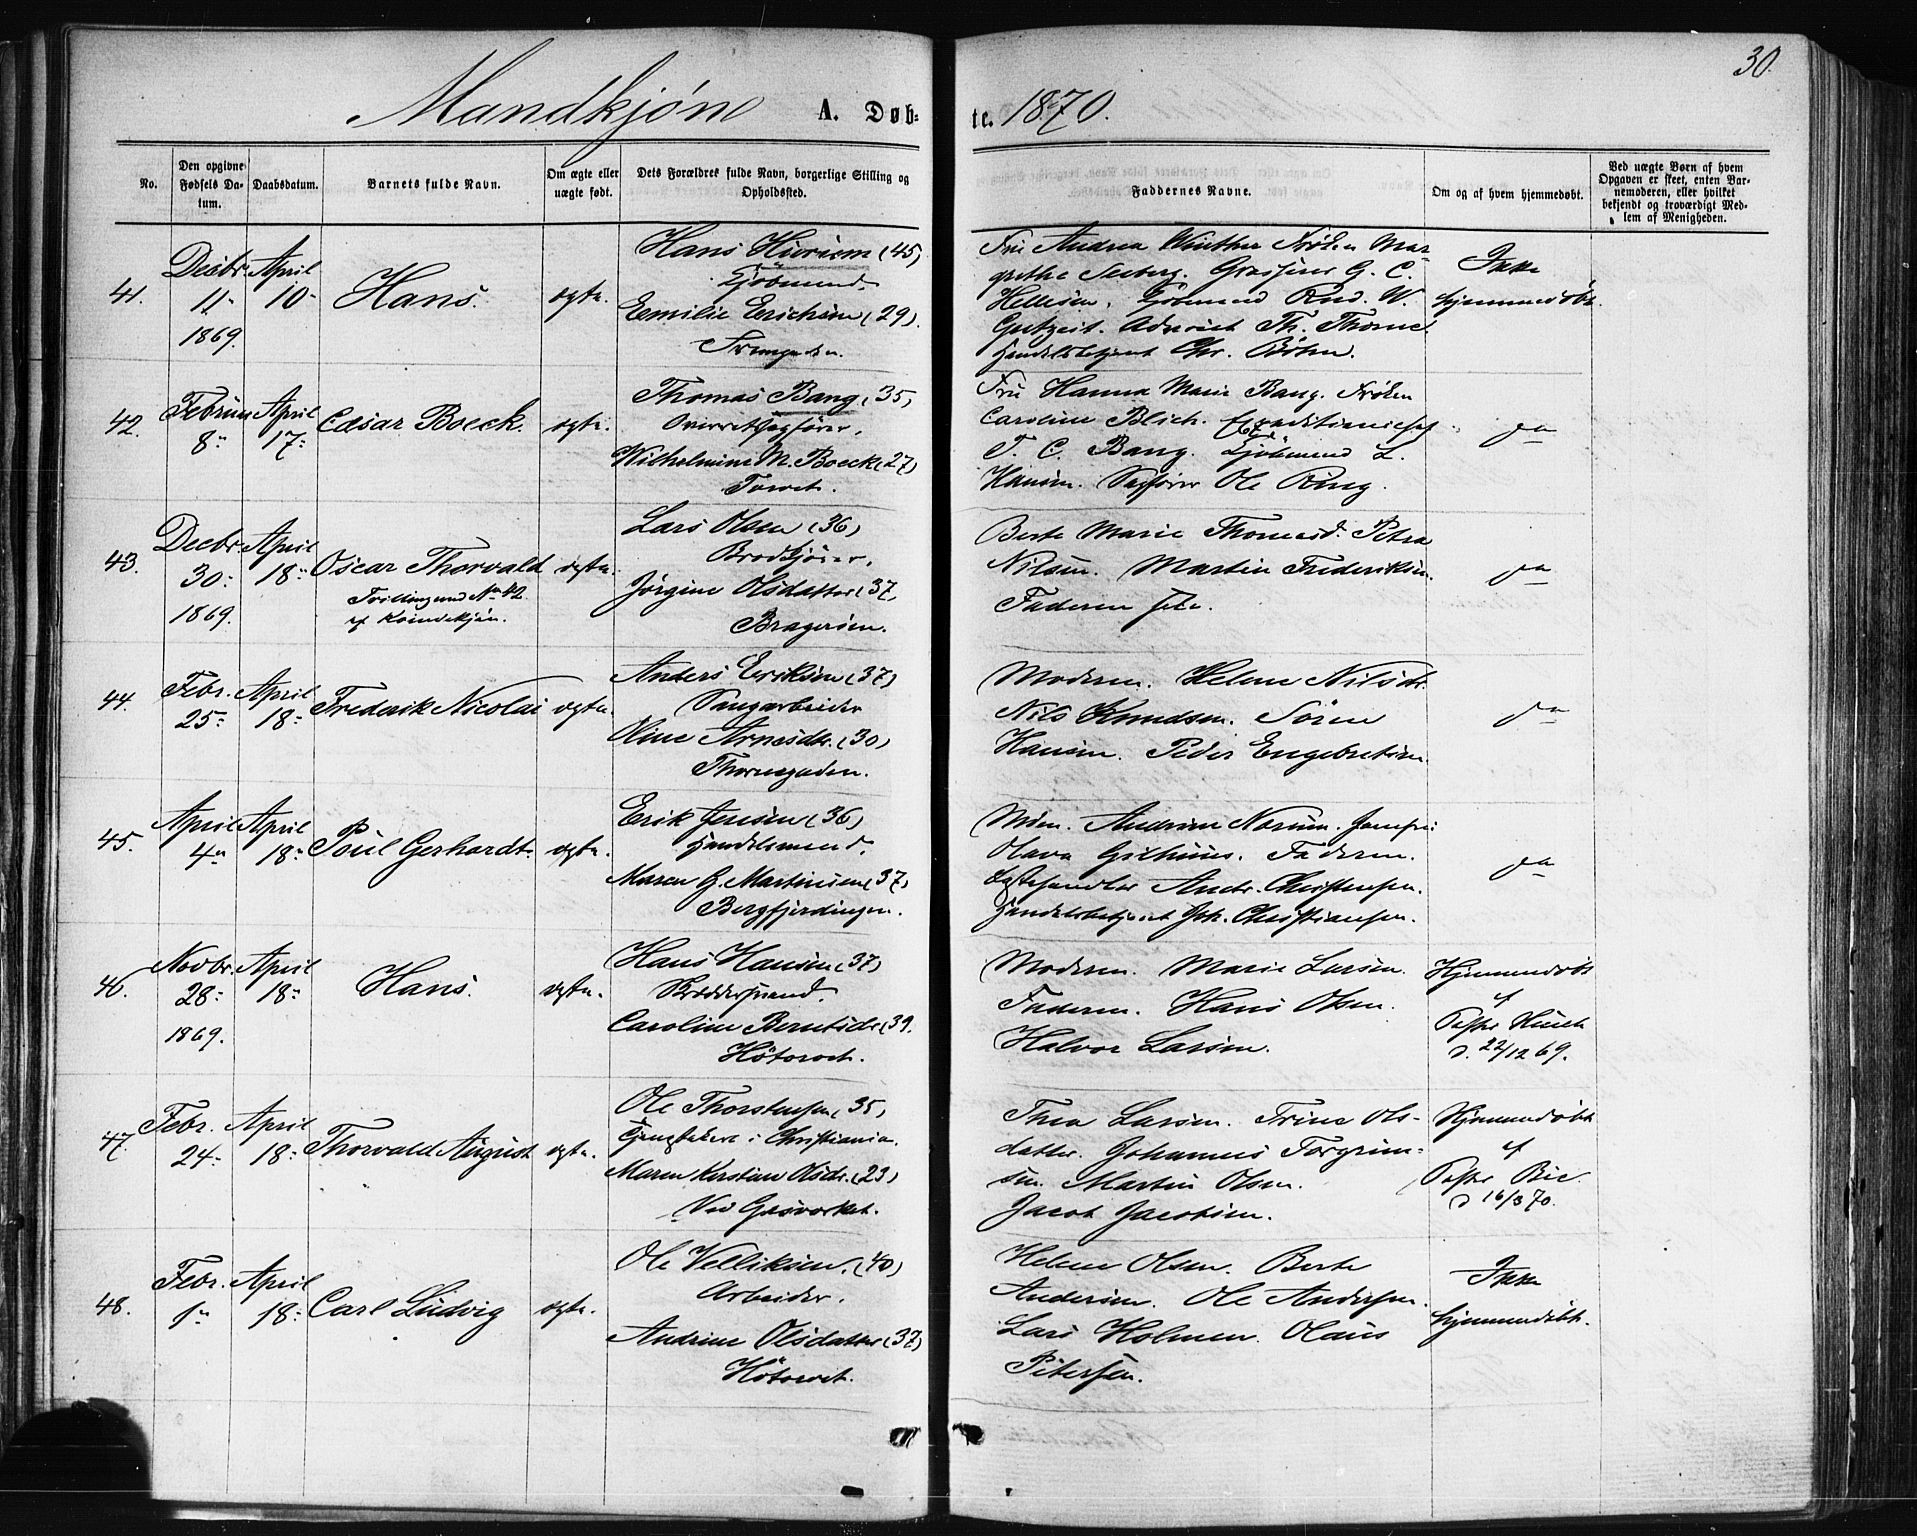 30.
Mandkjøn A. Døb=
te. 1870.
No.
Den opgivne Fødsels Datum.
Daabsdatum.
Barnets fulde Navn.
Om ægte eller uægte født.
Dets Forældres fulde Navn, borgerlige Stilling og Opholdssted.
Faddernes Navne.
Om og af hvem hjemmedøbt.
Ved uægte Børn af hvem Opgaven er skeet, enten Barnemoderen, eller hvilket bekjendt og troværdigt Medlem af Menigheden.
41.
Decbr.
11
1869.
April
10
Hans.
ægte.
Hans (45)
Kjøbmand.
Emilie Erichsen (29).
Fru Andrea Winther Frøken Mar-
grethe Seeberg. G. C.
Hellesen, Kjøbmand Rud. W.
Gutzeit. Th. Thorne.
Handelsbetjent Chr.
Ikke
hjemmedøbt.
42.
8
April
17
Cæsar Boeck.
ægte.
Thomas Bang (35)
Overretssagfører.
Wilhelmine M. Boeck (27)
Torvet.
Fru Hanna Marie Bang. Frøken
Caroline Blich. Expeditionschef
T. C. Bang. Kjøbmand L.
Hansen. Sagfører Ole Ring.
do
43.
Decbr.
30
1869.
April
18
Oscar Thorvald
Tvilling med No 42
af Kvindekjøn.
ægte.
Lars Olsen (36)
Brødkjører.
Jørgine Olsdatter (37)
Bragerøen.
Berte Marie Thomasd. Petra
Nilsen. Martin Frederiksen.
Faderen selv.
do
44.
Febr.
25
April
18
Frederik Nicolai
ægte.
Anders Eriksen (37)
Saugarbeider
Oline Arnesdtr. (30)
Thornegaden.
Moderen. Helene Nilsdr.
Nils Knudsen. Søren
Hansen. Peder Engebretsen.
do
45.
April
4
April
18
Poul Gerhardt.
ægte.
Erik Jensen (36)
Handelsmand.
Maren G. Martinsen (37)
Bergfjerdingen.
Mdm. Andrine Norum. Jomfru
Olava Gilhuus. Faderen.
Andr. Christensen.
Handelsbetjent Joh. Christiansen.
do
46.
Novbr.
28
1869.
April
18
Hans.
ægte.
Hans Hansen (37)
Skræddersvend.
Caroline Berntsdr. (39.
Høtorvet.
Moderen. Marie Larsen.
Faderen. Hans Olsen.
Halvor Larsen.
Hjemmedøbt
af
d. 22/12 69.
47.
Febr.
24
April
18
Thorvald August
ægte.
Ole Thorstensen (35)
i Christiania.
Maren Kerstine Olsdr. (23)
Ved Gasværket.
Thea Larsen. Trine Ols-
datter. Johannes Torgrim-
sen. Martin Olsen.
Jacob Jacobsen.
Hjemmedøbt
af
d 16/3 70.
48.
Febr.
1
April
18
Carl Ludvig
ægte.
Ole Velliksen. (40)
Arbeider.
Andrine Olsdatter (37)
Høtorvet.
Helene Olsen. Berte
Andersen. Ole Andersen.
Lars Holmen. Olaus
Petersen.
Ikke
hjemmedøbt.